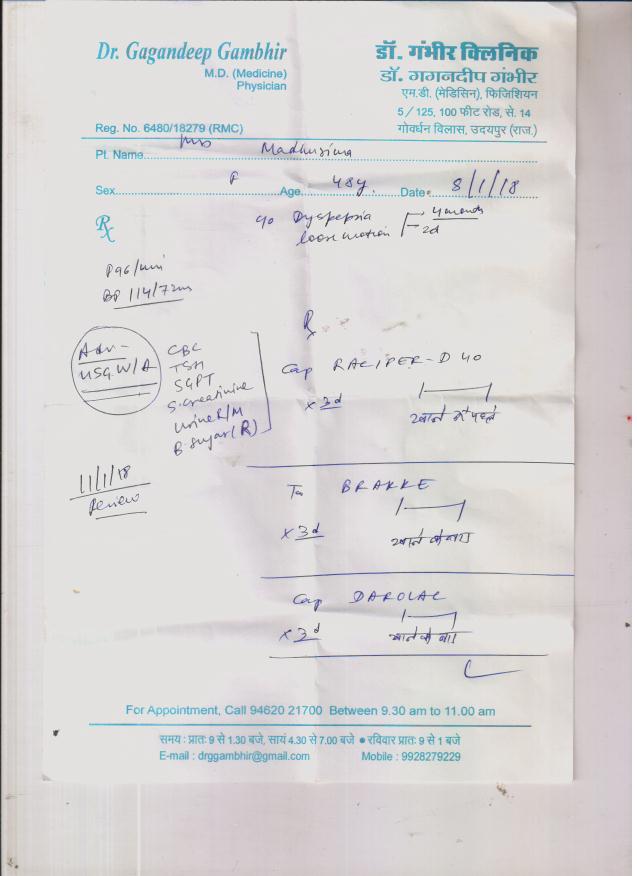 Dr. Gagandeep Gambhir
M.D. (Medicine)
Physician
Reg. No. 6480/18279 (RMC)
डॉ. गंभीर क्लिनिक
डॉ. गगनदीप गंभीर
एम.डी. (मेडिसिन), फिजिशियन
5 / 125, 100 फीट रोड, से. 14
गोवर्धन विलास, उदयपुर (राज.)
Pt. Name Mrs
Sex F Age 48y. Date 8/1/18
Rx
c/o Dyspepsia
loose motion 2d
P 96/min
BP 114/72
Adv-
USG W/A
CBC
TSH
SGPT
S. Creatinine
Urine R/M
B. Sugar (R)
11/1/18
Review
Rx
Cap RACIPER-D 40
x 3d खाने से पहले
BRAKKE
x 3d खाने के बाद
Cap DAROLAC
x 3d खाने के बाद
For Appointment, Call 94620 21700 Between 9.30 am to 11.00 am
समय : प्रातः 9 से 1.30 बजे, सायं 4.30 से 7.00 बजे ● रविवार प्रातः 9 से 1 बजे
E-mail : drggambhir@gmail.com Mobile : 9928279229